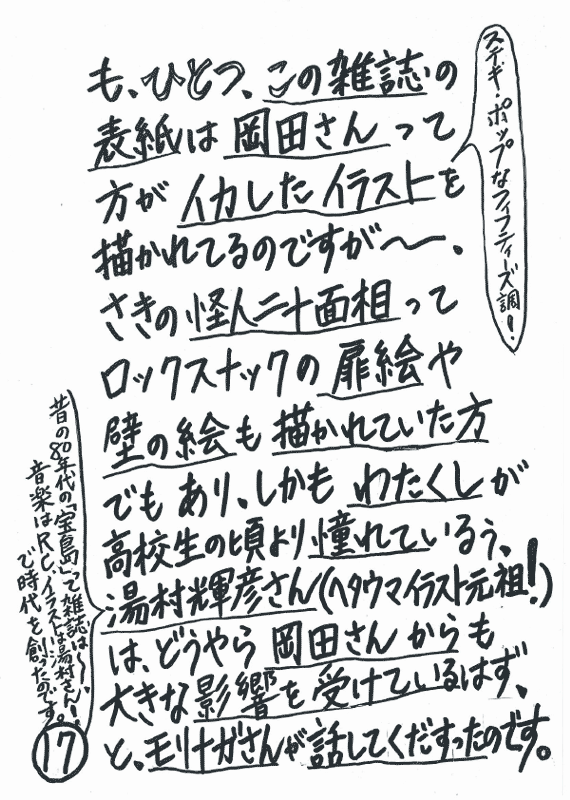 も、ひとつ、この雑誌の
表紙は岡田さんって
方がイカしたイラストを
描かれてるのですが〜、
さきの怪人二十面相って
ロックスナックの扉絵や
壁の絵も描かれていた方
でもあり、しかもわたくしが
高校生の頃より憧れているぅ、
湯村輝彦さん(ヘタウマイラスト元祖!)
は、どうやら岡田さんからも
大きな影響を受けているはず、
と、モリナガさんが話してくだすったのです。
ステキ・ポップなフィフティーズ調!
昔の80年代の「宝島」って雑誌は〜い
音楽はRC、イラストは湯村さん!
で時代を創ったのです。
17